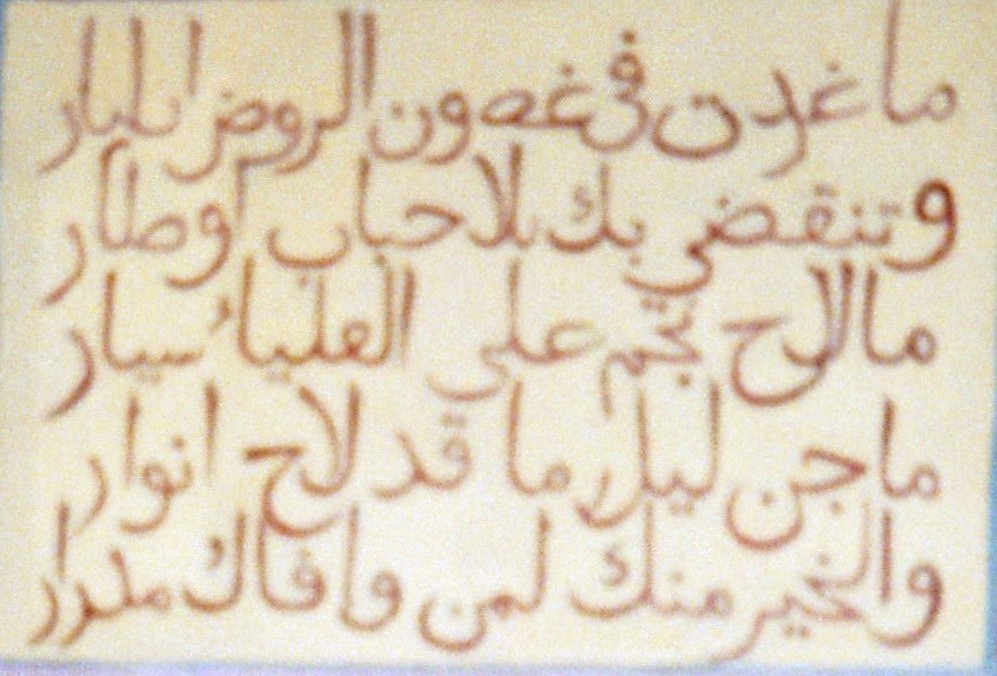 ما غردت فى غصون الروض اطيار
وتنقضي بك بلاحباب اوطار
مالاح نجم على العلياء سيار
ماجن ليل وما قد لاح انوار
والخير منك لمن وافاك مدرار